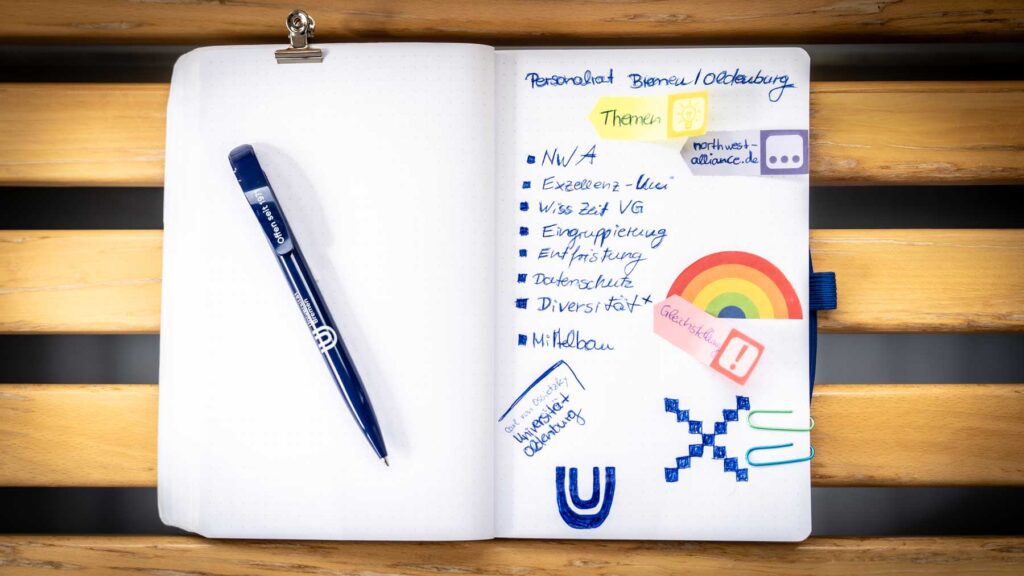 Personalrat Bremen/Oldenburg
Themen
northwest-
alliance.de
NWA
Exzellenz-Uni
Wiss Zeit VG
Eingruppierung
Entfristung
Datenschutz
Diversität+
Gleichstellung
Mittelbau
Carl von Ossietzky
Universität
Oldenburg
Offen seit 1971
Universität
Bremen